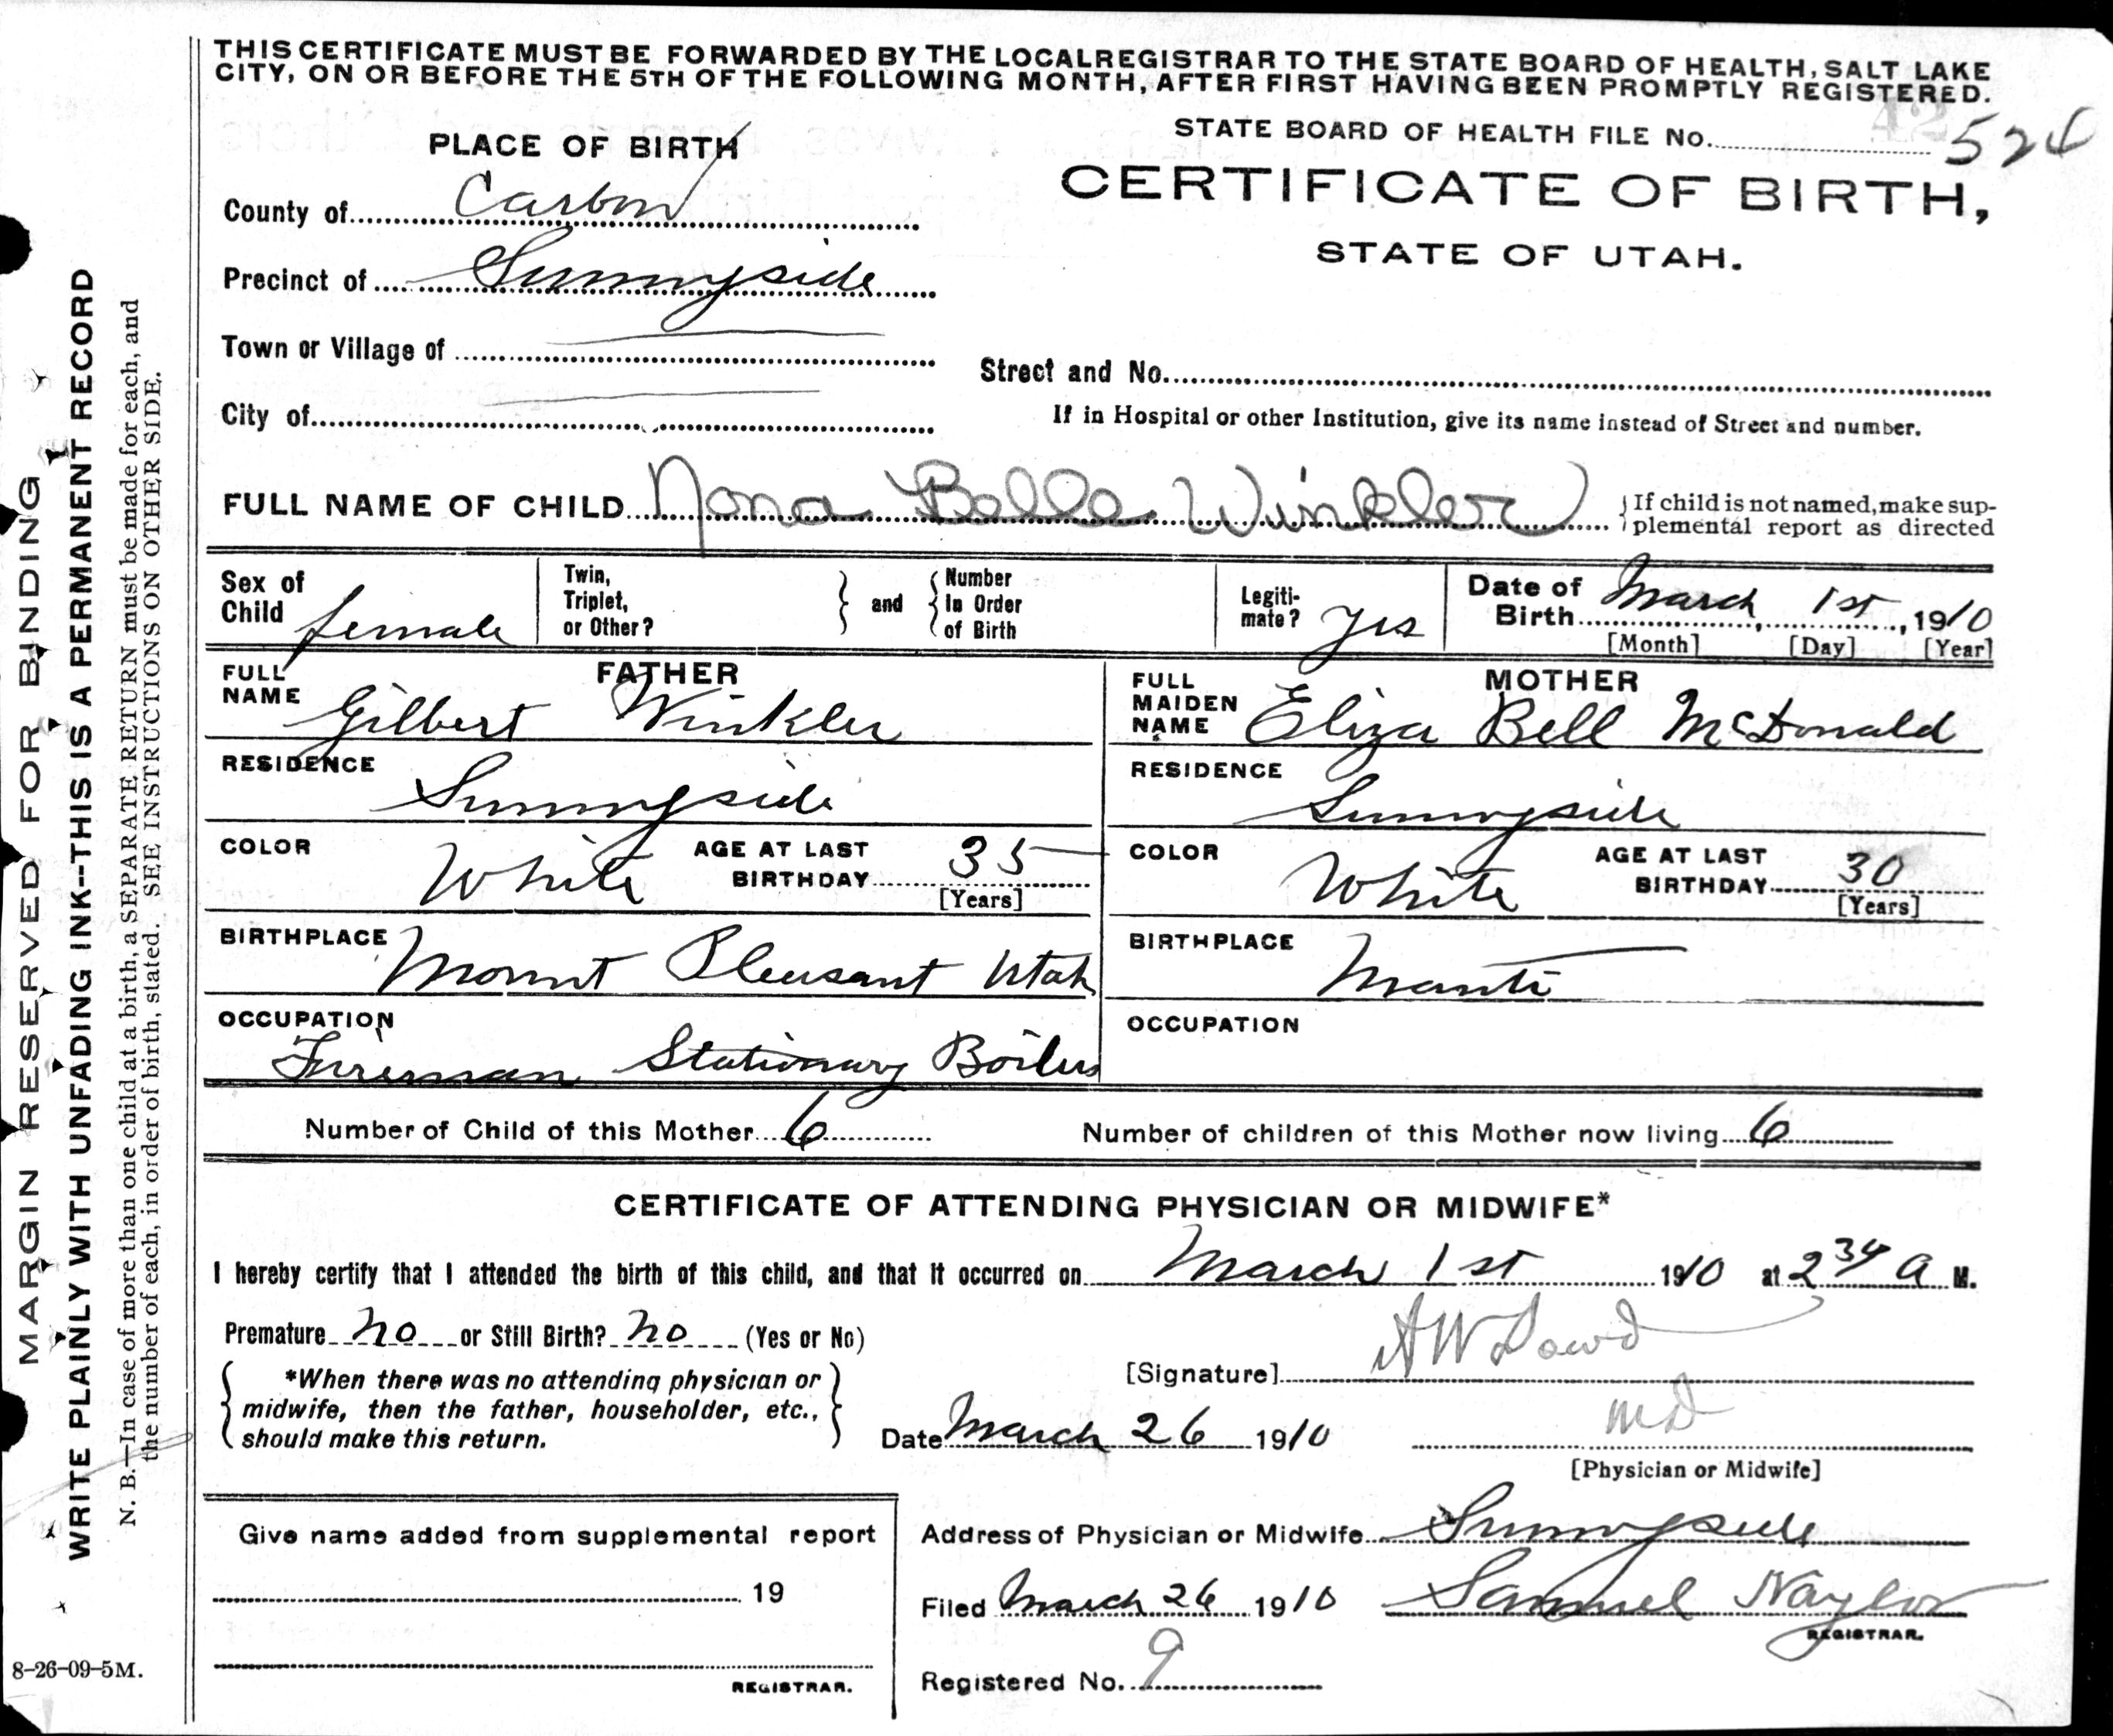 THIS CERTIFICATE MUST BE FORWARDED BY THE LOCAL REGISTRAR TO THE STATE BOARD OF HEALTH, SALT LAKE
CITY, ON OR BEFORE THE 5TH OF THE FOLLOWING MONTH, AFTER FIRST HAVING BEEN PROMPTLY REGISTERED.
STATE BOARD OF HEALTH FILE No. 524
PLACE OF BIRTH
CERTIFICATE OF BIRTH,
STATE OF UTAH.
County of Carbon
Precinct of Sunnyside
Town or Village of
Street and No.
City of
If in Hospital or other Institution, give its name instead of Street and number.
FULL NAME OF CHILD Nona Belle Winkler
If child is not named, make sup-
plemental report as directed
Sex of Child female
Twin, Triplet, or Other?
and
Number In Order of Birth
Legiti-
mate? yes
Date of Birth March 1st, 1910
[Month] [Day] [Year]
FATHER
FULL NAME Gilbert Winkler
RESIDENCE Sunnyside
COLOR White
AGE AT LAST BIRTHDAY 35
[Years]
BIRTHPLACE Mount Pleasant Utah
OCCUPATION
Fireman Stationary Boilers
MOTHER
FULL MAIDEN NAME Eliza Bell McDonald
RESIDENCE Sunnyside
COLOR White
AGE AT LAST BIRTHDAY 30
[Years]
BIRTHPLACE Manti
OCCUPATION
Number of Child of this Mother 6
Number of children of this Mother now living 6
CERTIFICATE OF ATTENDING PHYSICIAN OR MIDWIFE*
I hereby certify that I attended the birth of this child, and that it occurred on March 1st 1910 at 2 34 a M.
Premature no or Still Birth? no (Yes or No)
*When there was no attending physician or
midwife, then the father, householder, etc.,
should make this return.
[Signature] A W Dowd
Date March 26 1910
MD
[Physician or Midwife]
Give name added from supplemental report
19
REGISTRAR.
Address of Physician or Midwife Sunnyside
Filed March 26 1910 Samuel Naylor
REGISTRAR.
Registered No. 9
8-26-09-5M.
MARGIN RESERVED FOR BINDING
WRITE PLAINLY WITH UNFADING INK--THIS IS A PERMANENT RECORD
N. B.—In case of more than one child at a birth, a SEPARATE RETURN must be made for each, and
the number of each, in order of birth, stated. SEE INSTRUCTIONS ON OTHER SIDE.